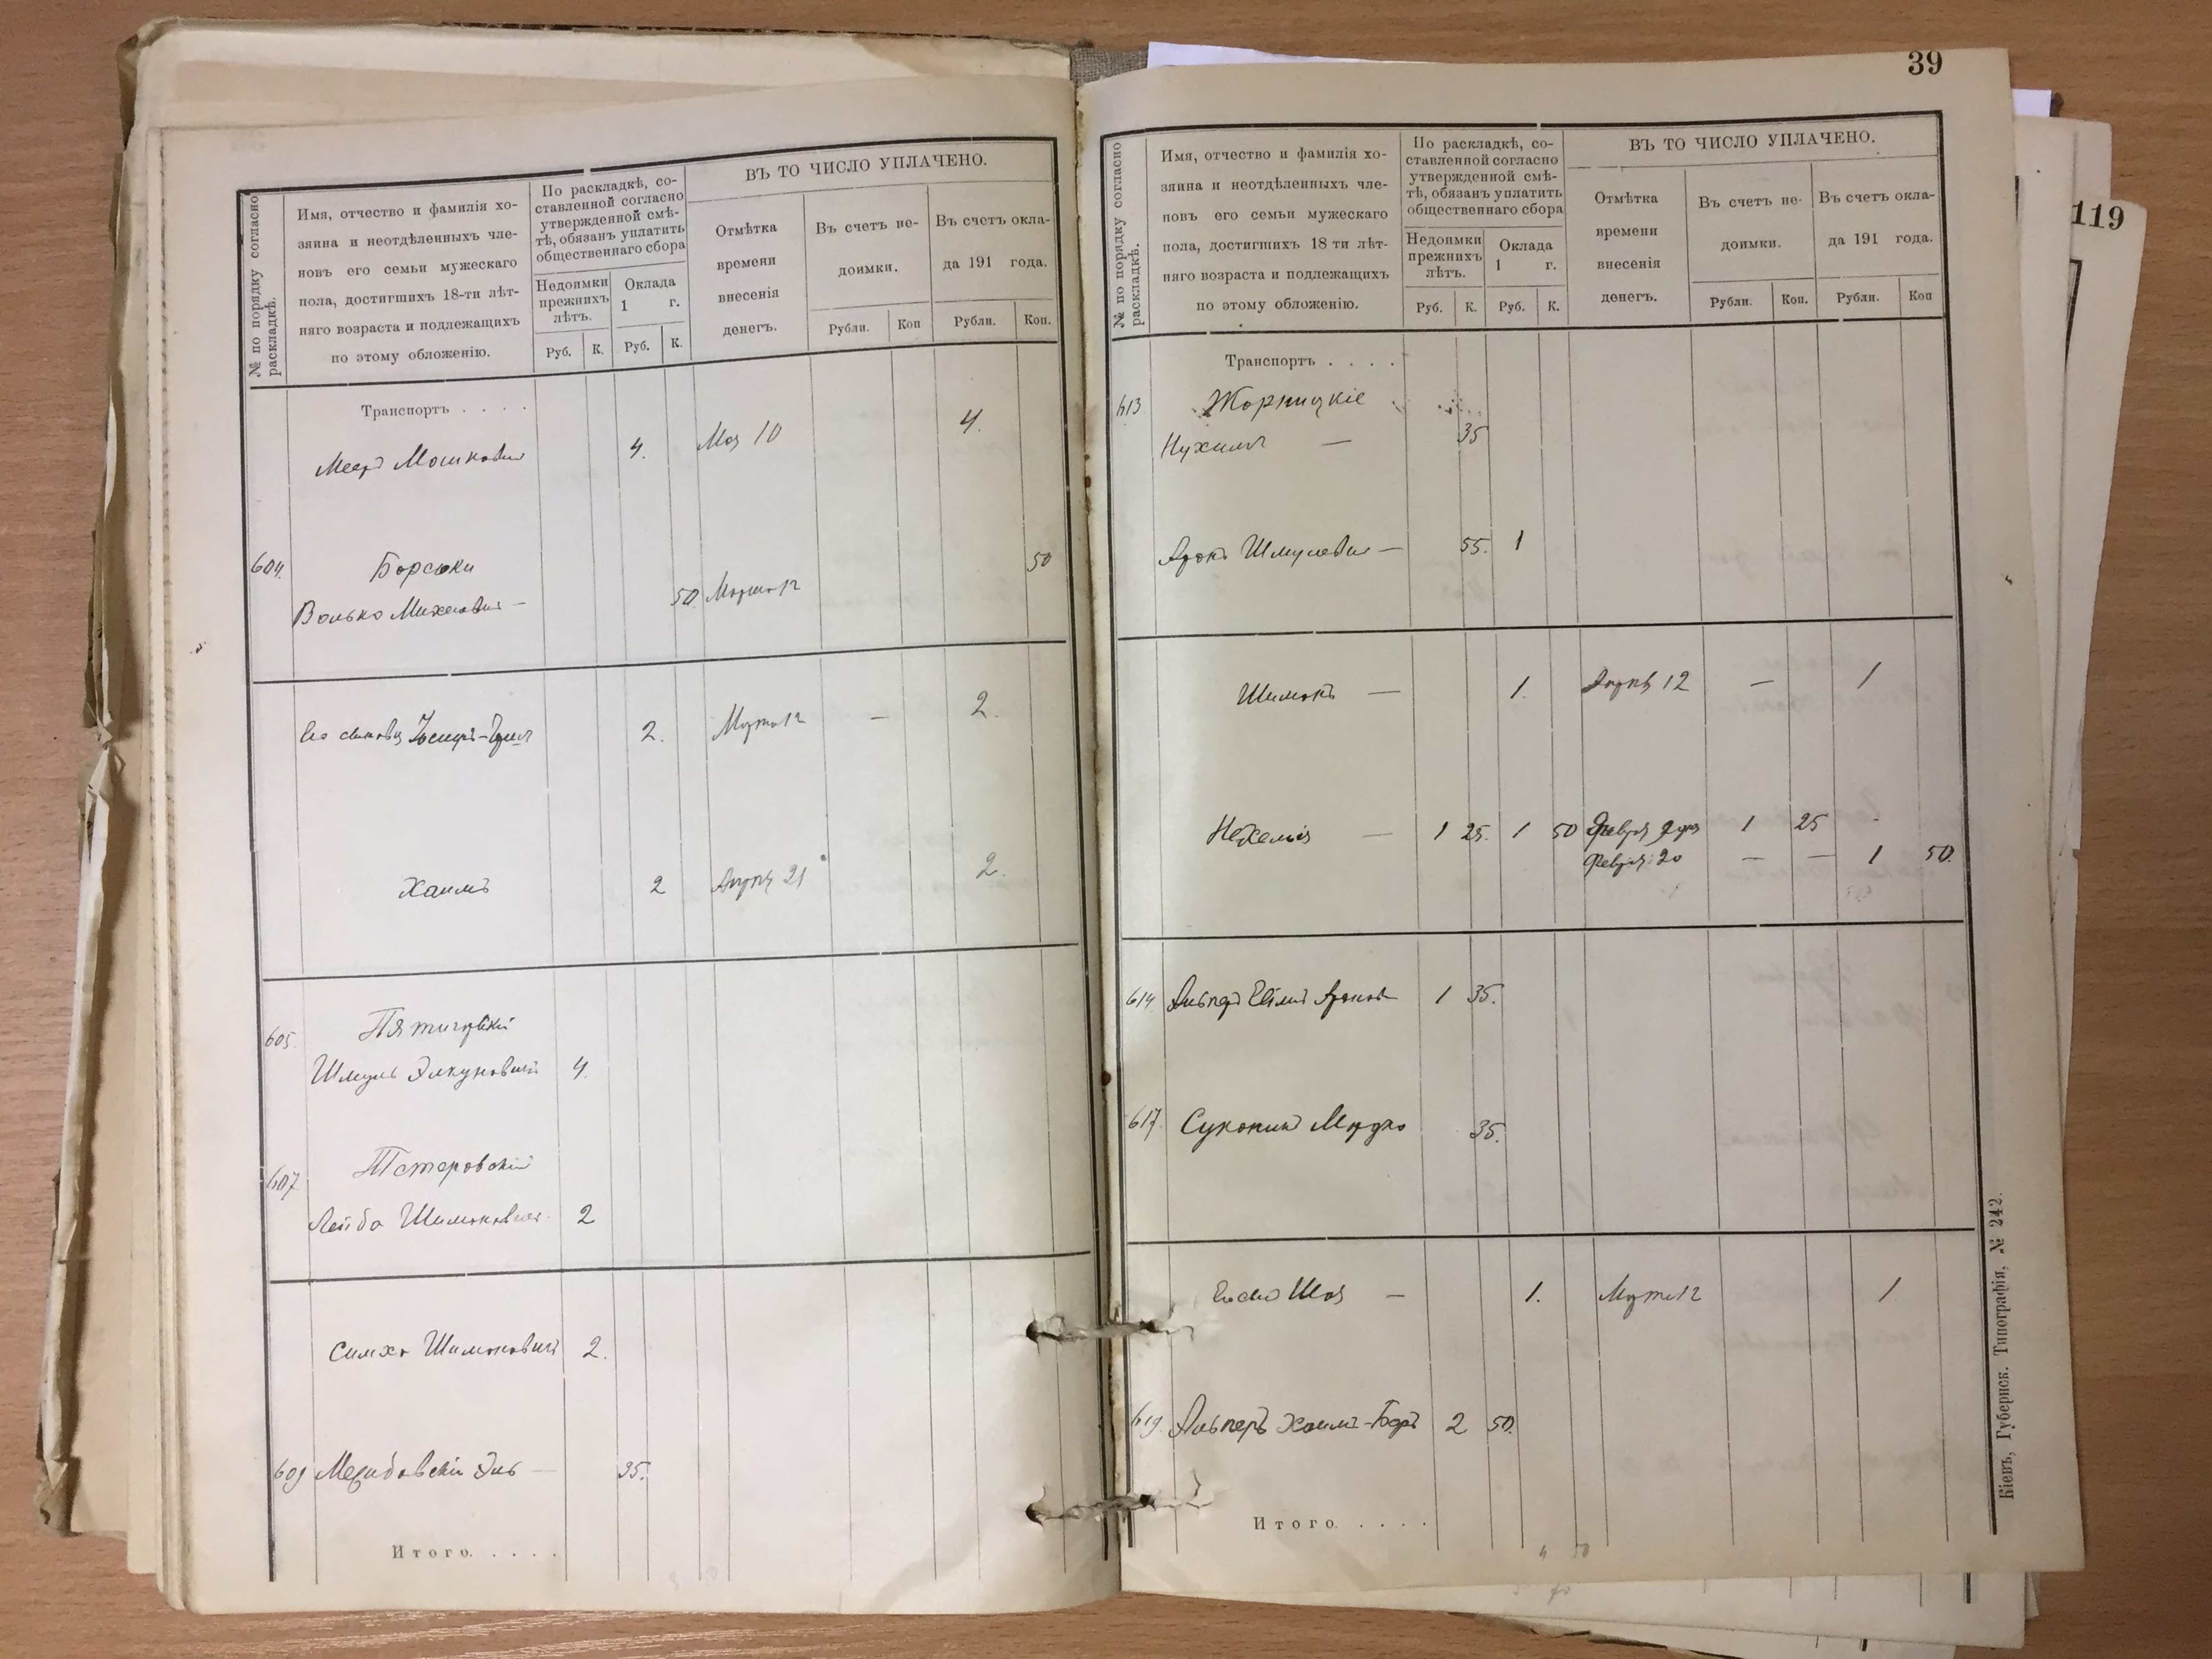 № по порядку согласно
раскладкѣ.
Имя, отчество и фамилія хо-
зяина и неотдѣленныхъ чле-
новъ его семьи мужескаго
пола, достигшихъ 18-ти лѣт-
няго возраста и подлежащихъ
по этому обложенію.
По раскладкѣ, со-
ставленной согласно
утвержденной смѣ-
тѣ, обязанъ уплатить
общественнаго сбора
Недоимки
прежнихъ
лѣтъ.
Оклада
1 г.
Руб. К. Руб. К.
ВЪ ТО ЧИСЛО УПЛАЧЕНО.
Отмѣтка
времени
внесенія
денегъ.
Въ счетъ не-
доимки.
Въ счетъ окла-
да 191 года.
Рубли. Коп Рубли. Коп.
Транспортъ . . . .
Мееръ Мошковичъ 4. Мая 10 4.
604. Борсюки 50
Волько Михелевичъ — 50 Марта 12
Его сыновья 2. Марта 12 — 2.
Хаимъ 2 Апрѣля 21 2.
605. Пятигорскій
Шмуль Элкуновичъ 4.
607. Тетеровскій
Лейба Шимоновичъ. 2
Симха Шимоновичъ 2.
609 Меджибовскій Эль — 35.
Итого. . . . .
39
№ по порядку согласно
раскладкѣ.
Имя, отчество и фамилія хо-
зяина и неотдѣленныхъ чле-
новъ его семьи мужескаго
пола, достигшихъ 18 ти лѣт-
няго возраста и подлежащихъ
по этому обложенію.
По раскладкѣ, со-
ставленной согласно
утвержденной смѣ-
тѣ, обязанъ уплатить
общественнаго сбора
Недоимки
прежнихъ
лѣтъ.
Оклада
1 г.
Руб. К. Руб. К.
ВЪ ТО ЧИСЛО УПЛАЧЕНО.
Отмѣтка
времени
внесенія
денегъ.
Въ счетъ не-
доимки.
Въ счетъ окла-
да 191 года.
Рубли. Коп. Рубли. Коп
Транспортъ . . . .
613 Жорницкіе
Нухимъ — 35
Аронъ Шмулевичъ — 55. 1
Шимонъ — 1. Апрѣля 12 — 1
Нехемія — 1 25. 1 50 Февраля 1 25
Февраля 20 — — 1 50.
614 Альперъ Аронов 1 35.
617. Суконикъ Мордко 35.
Его сынъ Шая — 1. Марта 12 1
619. Альперъ Хаимъ-Беръ 2 50.
Итого. . . . .
Кіевъ, Губернск. Типографія, № 242.
119